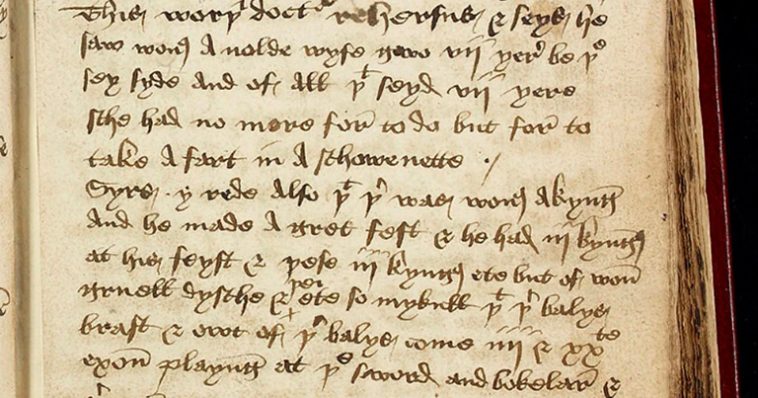 This worp doctr rehersus & seys he
saw wons A nolde wyfe gwo vii yer be þe
sey syde And of All þt seyd vii yere
sche had no more for to do but for to
take A fart in A schowenette
Syrs y rede Also þt þr was wons A kyng
And he made A gret fest & he had iii kyngs
at his feyst & þese iii kyngs ete but of won
gruell dysche & þei ete so mykull þt þr balys
brast & owt of þr balys come iiii & xxte
exon playng at þe sword and bokelar &